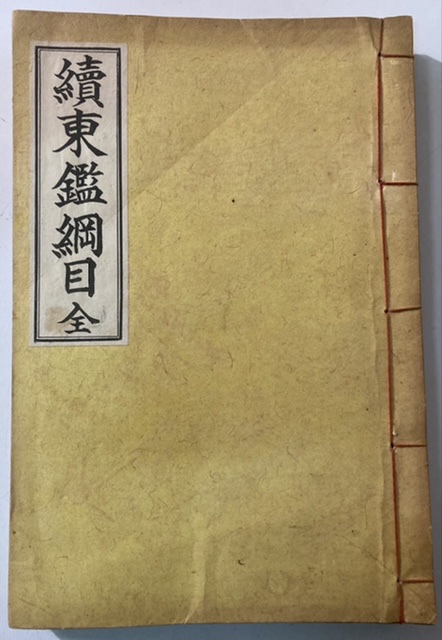 續東鑑綱目 全